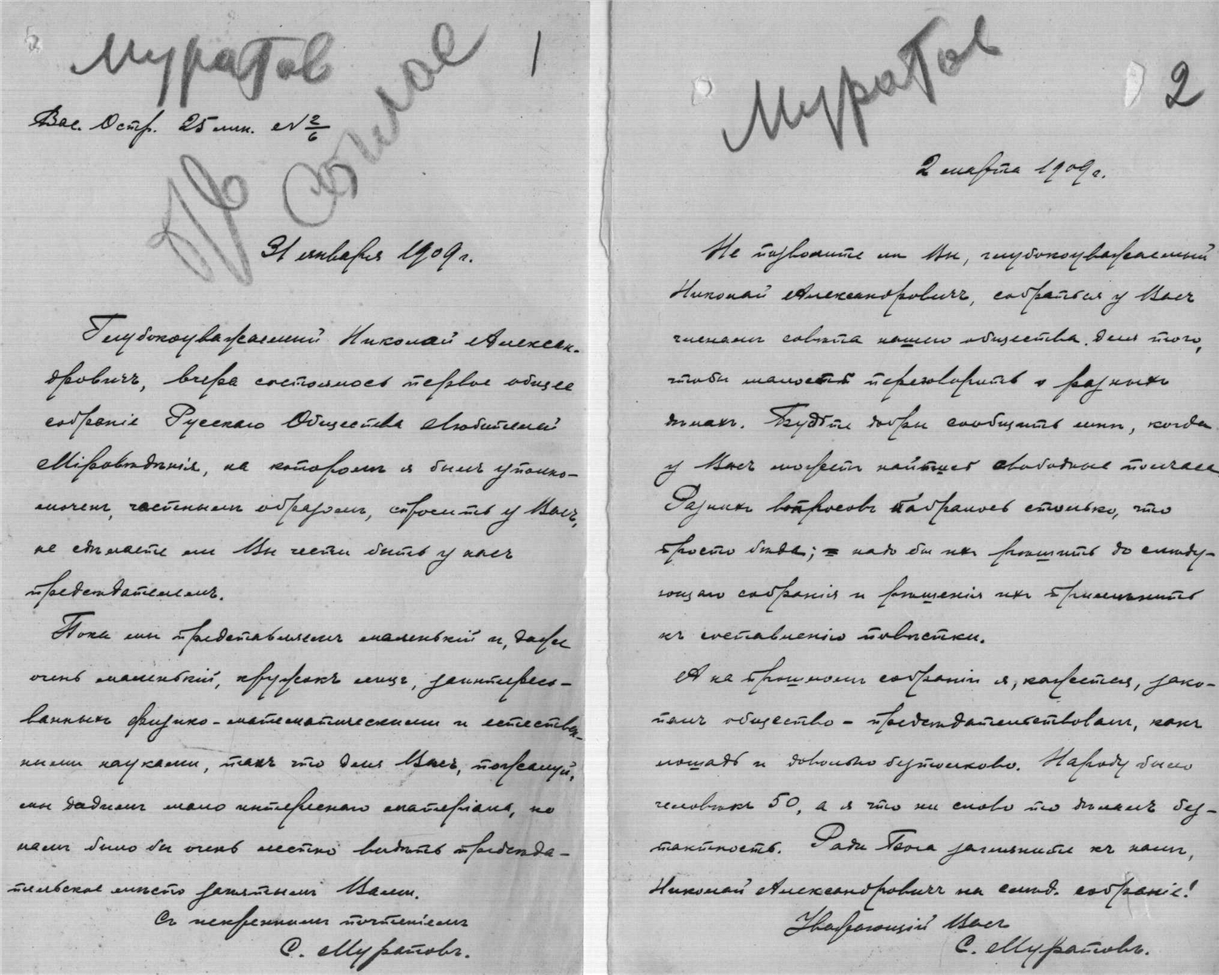 Муратов
1
Вас. Остр. 25 лин. № 2/6
31 января 1909 г.
Глубокоуважаемый Николай Алексан-
дровичъ, вчера состоялось первое общее
собраніе Русскаго Общества Любителей
Міровѣдѣнія, на которомъ я былъ уполно-
моченъ, частнымъ образомъ, спросить у Васъ,
не сдѣлаете ли Вы чести быть у насъ
предсѣдателемъ.
Пока мы представляемъ маленькій и, даже
очень маленькій, кружокъ лицъ, заинтересо-
ванныхъ физико-математическими и естествен-
ными науками, такъ что для Васъ, пожалуй,
мы дадимъ мало интереснаго матеріала, но
намъ было бы очень лестно видѣть предсѣда-
тельское мѣсто занятымъ Вами.
Съ искреннимъ почтеніемъ
С. Муратовъ.
Муратов
2
2 марта 1909 г.
Не позволите ли Вы, глубокоуважаемый
Николай Александровичъ, собраться у Васъ
членамъ совѣта нашего общества для того,
чтобы малость переговорить о разныхъ
дѣлахъ. Будьте добры сообщить мнѣ, когда
у Васъ можетъ найтись свободные полчаса
Разныхъ вопросовъ набралось столько, что
просто бѣда; надо бы ихъ рѣшить до слѣду-
ющаго собранія и рѣшенія ихъ примѣнить
къ составленію повѣстки.
А на прошломъ собраніи я, кажется, зако-
палъ общество – предсѣдательствовалъ, какъ
лошадь и довольно безтолково. Народу было
человѣкъ 50, а я что ни слово то дѣлалъ без-
тактность. Ради Бога загляните къ намъ,
Николай Александровичъ на слѣд. собраніе!
Уважающій Васъ
С. Муратовъ.